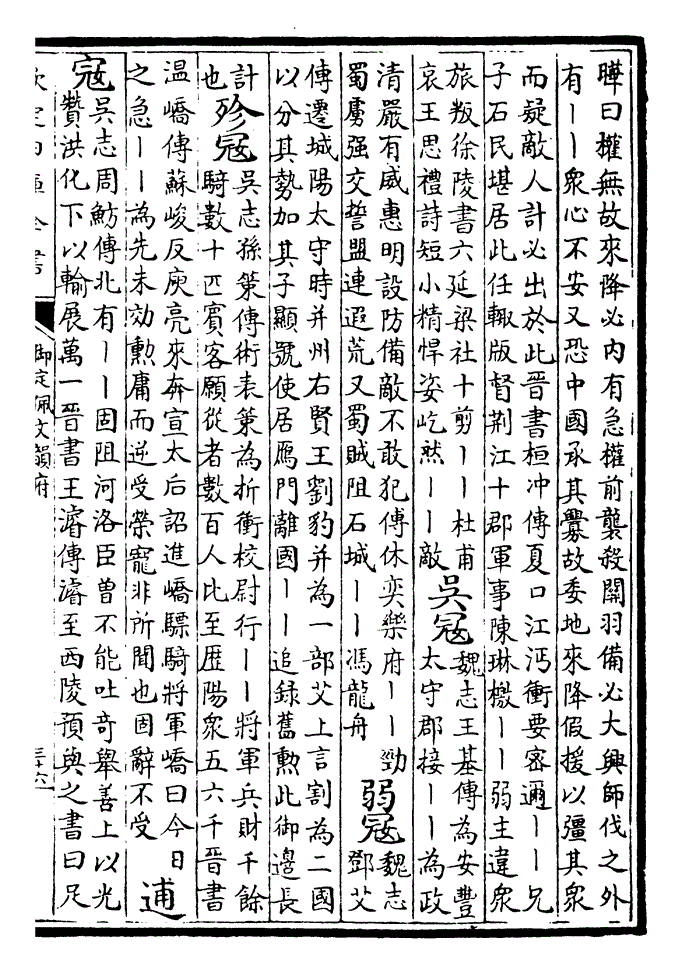 曄曰權無故來降必内有急權前襲殺關羽備必大興師伐之外
有丨丨衆心不安又恐中國承其釁故委地來降假援以彊其衆
而疑敵人計必出於此晉書桓冲傳夏口江沔衝要密邇丨丨兄
子石民堪居此任輙版督荆江十郡軍事陳琳檄丨丨弱主違衆
旅叛徐陵書六延梁社十剪丨丨杜甫
哀王思禮詩短小精悍姿屹然丨丨敵
吳寇
魏志王基傳為安豐
太守郡接丨丨為政
清嚴有威惠明設防備敵不敢犯傅休奕樂府丨丨勁
蜀虜强交誓盟連遐荒又蜀賊阻石城丨丨馮龍舟
弱寇
魏志
鄧艾
傳遷城陽太守時并州右賢王劉豹并為一部艾上言割為二國
以分其勢加其子顯號使居鴈門離國丨丨追錄舊勲此御邊長
計
也
殄寇
吳志孫策傳術表策為折衝校尉行丨丨將軍兵財千餘
騎數十匹賓客願從者數百人比至歷陽衆五六千晉書
温嶠傳蘇峻反庾亮來奔宣太后詔進嶠驃騎將軍嶠曰今日
之急丨丨為先未効勲庸而逆受榮寵非所聞也固辭不受
逋
寇
吳志周魴傳北有丨丨固阻河洛臣曾不能吐奇舉善上以光
贊洪化下以輸展萬一晉書王濬傳濬至西陵預與之書曰足
欽定四庫全書
御定佩文韻府
三十六